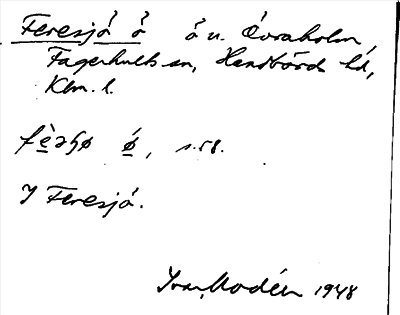 Feresjö ö ö u. Övraholm,
Fagerhults sn, Handbörds hd,
Klm. l.
ö, s. 58.
I Feresjö.
Ivar Modéer 1948